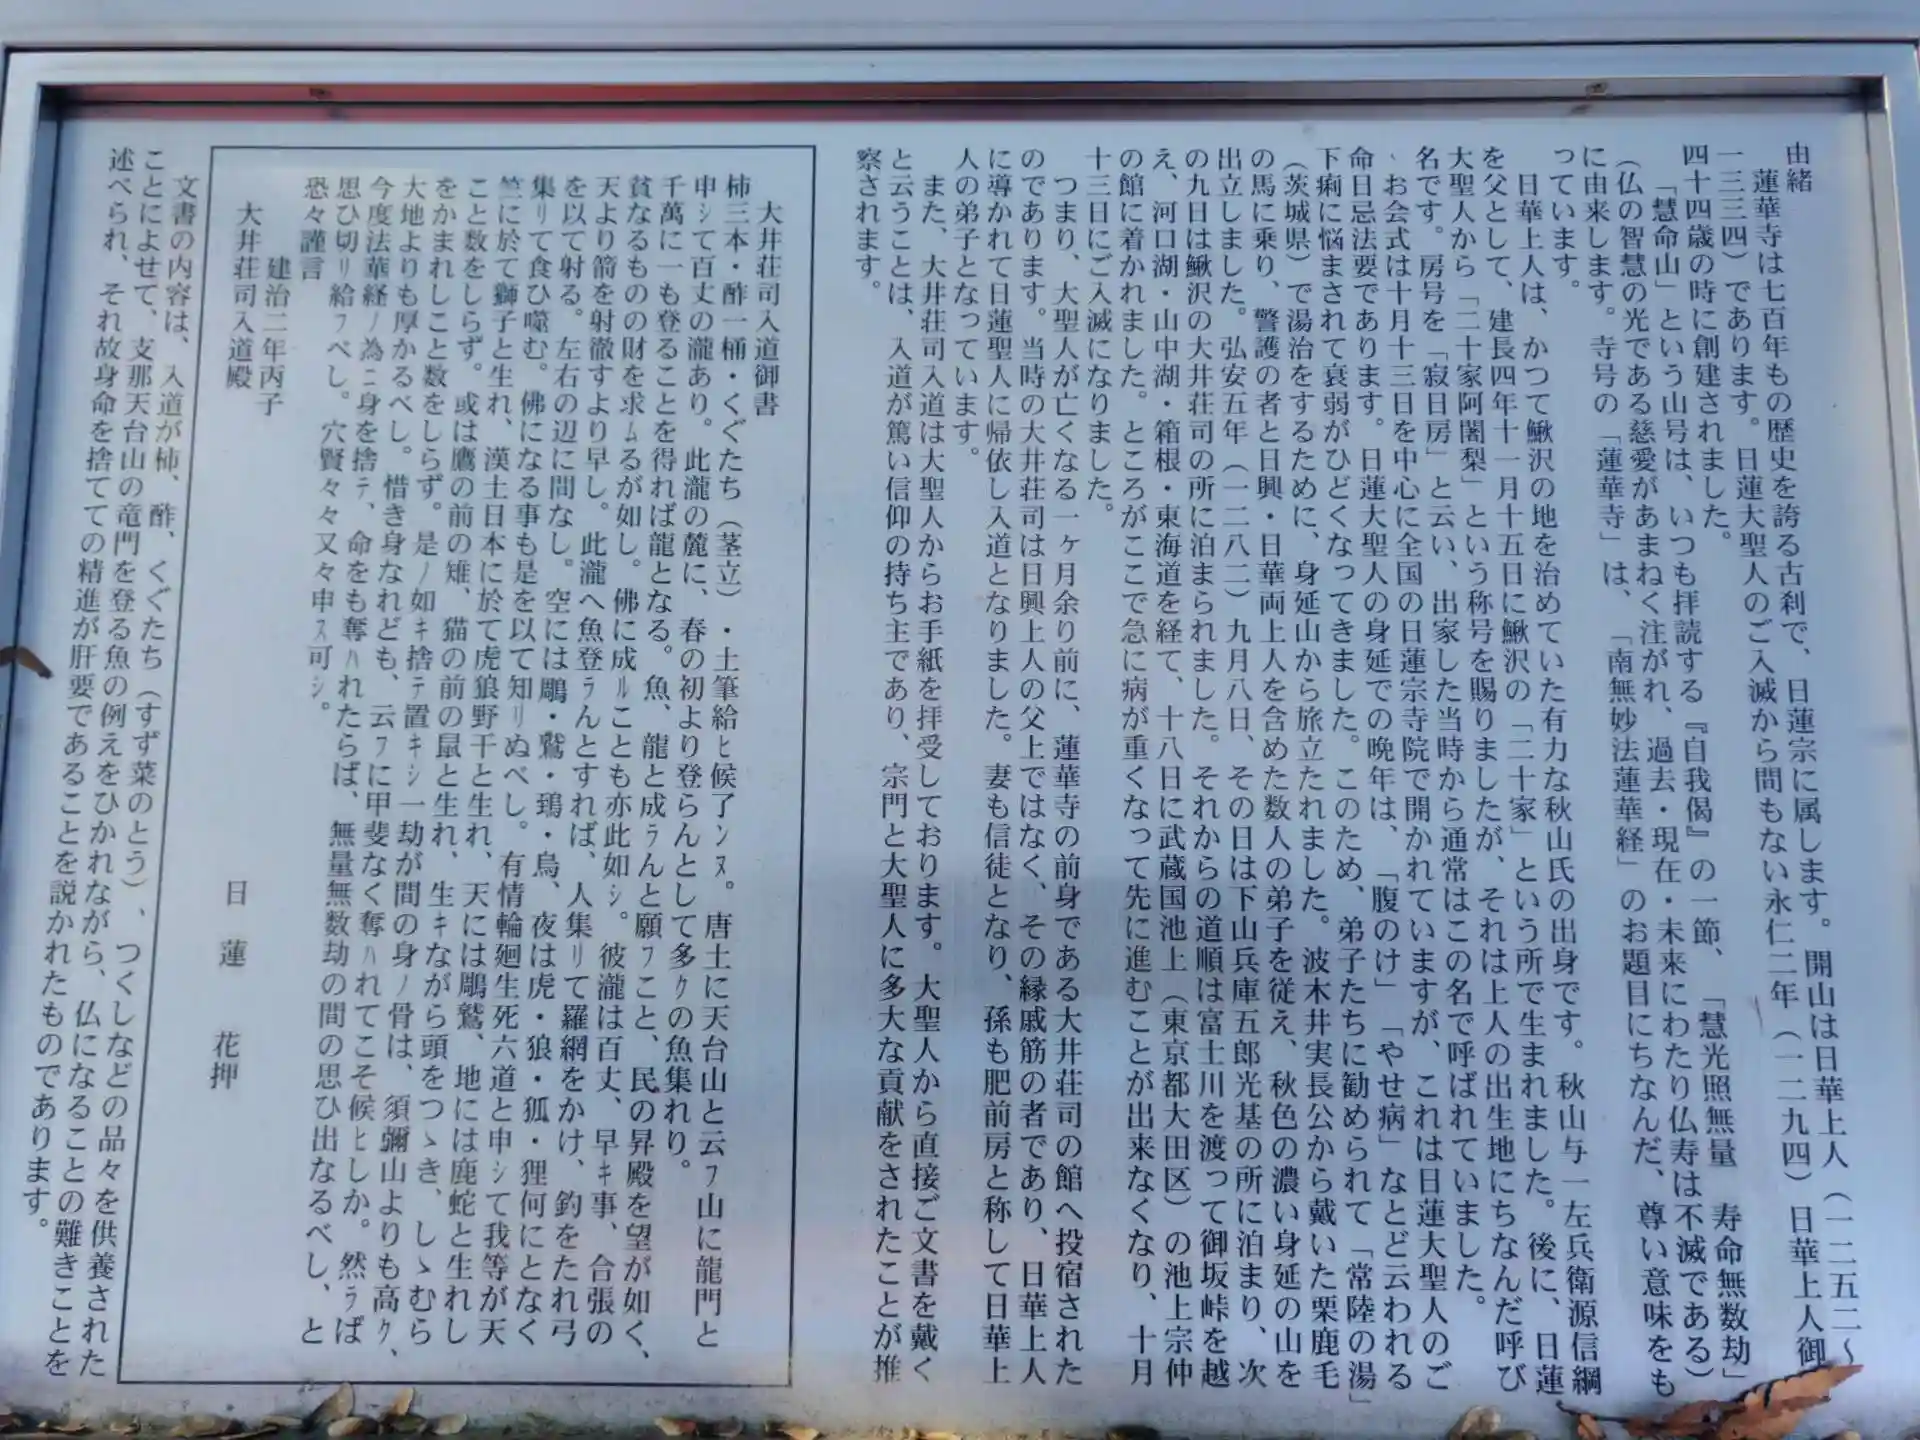 由緒
蓮華寺は七百年もの歴史を誇る古刹で、日蓮宗に属します。開山は日華上人（一二五二～
一三三四）であります。日蓮大聖人のご入滅から間もない永仁二年（一二九四）日華上人御
四十四歳の時に創建されました。
「慧命山」という山号は、いつも拝読する『自我偈』の一節、「慧光照無量　寿命無数劫」
（仏の智慧の光である慈愛があまねく注がれ、過去・現在・未来にわたり仏寿は不滅である）
に由来します。寺号の「蓮華寺」は、「南無妙法蓮華経」のお題目にちなんだ、尊い意味をも
っています。
日華上人は、かつて鰍沢の地を治めていた有力な秋山氏の出身です。秋山与一左兵衛源信綱
を父として、建長四年十一月十五日に鰍沢の「二十家」という所で生まれました。後に、日蓮
大聖人から「二十家阿闍梨」という称号を賜りましたが、それは上人の出生地にちなんだ呼び
名です。房号を「寂日房」と云い、出家した当時から通常はこの名で呼ばれていました。
お会式は十月十三日を中心に全国の日蓮宗寺院で開かれていますが、これは日蓮大聖人のご
命日忌法要であります。日蓮大聖人の身延での晩年は、「腹のけ」「やせ病」などと云われる
下痢に悩まされて衰弱がひどくなってきました。このため、弟子たちに勧められて「常陸の湯」
（茨城県）で湯治をするために、身延山から旅立たれました。波木井実長公から戴いた栗鹿毛
の馬に乗り、警護の者と日興・日華両上人を含めた数人の弟子を従え、秋色の濃い身延の山を
出立しました。弘安五年（一二八二）九月八日、その日は下山兵庫五郎光基の所に泊まり、次
の九日は鰍沢の大井荘司の所に泊まられました。それからの道順は富士川を渡って御坂峠を越
え、河口湖・山中湖・箱根・東海道を経て、十八日に武蔵国池上（東京都大田区）の池上宗仲
の館に着かれました。ところがここで急に病が重くなって先に進むことが出来なくなり、十月
十三日にご入滅になりました。
つまり、大聖人が亡くなる一ヶ月余り前に、蓮華寺の前身である大井荘司の館へ投宿された
のであります。当時の大井荘司は日興上人の父上ではなく、その縁戚筋の者であり、日華上人
に導かれて日蓮聖人に帰依し入道となりました。妻も信徒となり、孫も肥前房と称して日華上
人の弟子となっています。
また、大井荘司入道は大聖人からお手紙を拝受しております。大聖人から直接ご文書を戴く
と云うことは、入道が篤い信仰の持ち主であり、宗門と大聖人に多大な貢献をされたことが推
察されます。
大井荘司入道御書
柿三本・酢一桶・くぐたち（茎立）・土筆給ヒ候了ンヌ。唐土に天台山と云フ山に龍門と
申シて百丈の瀧あり。此瀧の麓に、春の初より登らんとして多クの魚集れり。
千萬に一も登ることを得れば龍となる。魚、龍と成ラんと願フこと、民の昇殿を望が如く、
貧なるものの財を求ムるが如し。佛に成ルことも亦此如シ。彼瀧は百丈、早キ事、合張の
天より箭を射徹すより早し。此瀧へ魚登ラんとすれば、人集リて羅網をかけ、釣をたれ弓
を以て射る。左右の辺に間なし。空には鵰・鷲・鵄・烏、夜は虎・狼・狐・狸何にとなく
集リて食ひ噬む。佛になる事も是を以て知リぬべし。有情輪廻生死六道と申シて我等が天
竺に於て獅子と生れ、漢土日本に於て虎狼野干と生れ、天には鵰鷲、地には鹿蛇と生れし
こと数をしらず。或は鷹の前の雉、猫の前の鼠と生れ、生キながら頭をつゝき、しゝむら
をかまれしこと数をしらず。是ノ如キ捨テ置キシ一劫が間の身ノ骨は、須彌山よりも高ク、
大地よりも厚かるべし。惜き身なれども、云フに甲斐なく奪ハれてこそ候ヒしか。然ラば
今度法華経ノ為ニ身を捨テ、命をも奪ハれたらば、無量無数劫の間の思ひ出なるべし、と
思ひ切リ給フべし。穴賢々々又々申ス可シ。
恐々謹言
建治二年丙子　　日　蓮　花　押
大井荘司入道殿
文書の内容は、入道が柿、酢、くぐたち（すず菜のとう）、つくしなどの品々を供養された
ことによせて、支那天台山の竜門を登る魚の例えをひかれながら、仏になることの難きことを
述べられ、それ故身命を捨てての精進が肝要であることを説かれたものであります。